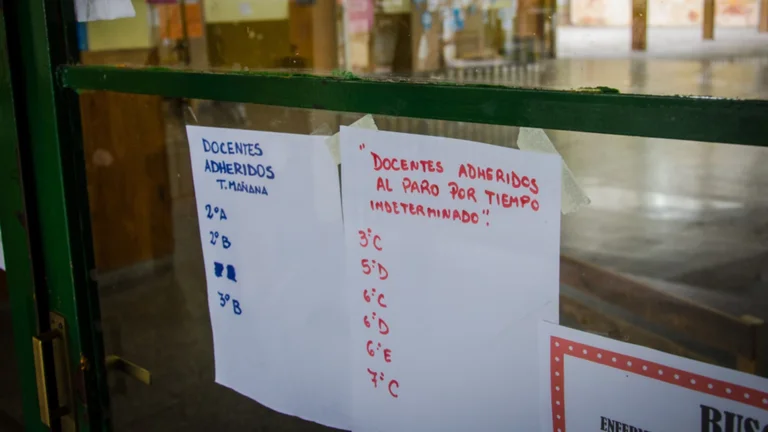 DOCENTES
ADHERIDOS
T. MAÑANA
2º A
2º B
3º B
"DOCENTES ADHERIDOS
AL PARO POR TIEMPO
INDETERMINADO".
3º C
5º D
6º C
6º D
6º E
7º C